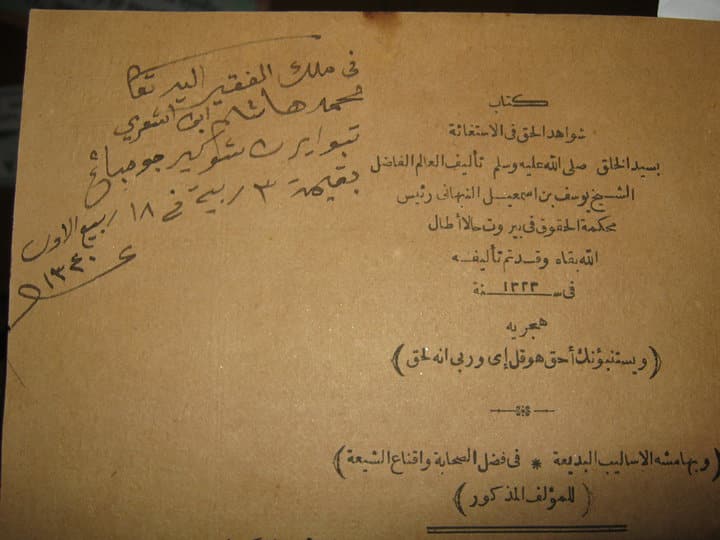 كتاب
شواهد الحق فى الاستغاثة
بسيد الخلق صلى الله عليه وسلم تأليف العالم الفاضل
الشيخ يوسف بن اسمعيل النبهانى رئيس
محكمة الحقوق فى بيروت حالا أطال
الله بقاه وقد تم تأليفه
فى سنة ١٣٢٣
هجريه
(ويستنبؤنك أحق هو قل إى وربى انه لحق)
(وبهامشه الاساليب البديعة * فى فضل الصحابة واقناع الشيعة)
(للمؤلف المذكور)
فى ملك الفقير اليه تعا
محمد هاشم ابن اشعري
تبوايرڠ جومباڠ
بقيمة ٣ ربية في ١٨ ربيع الاول
١٣٤٠